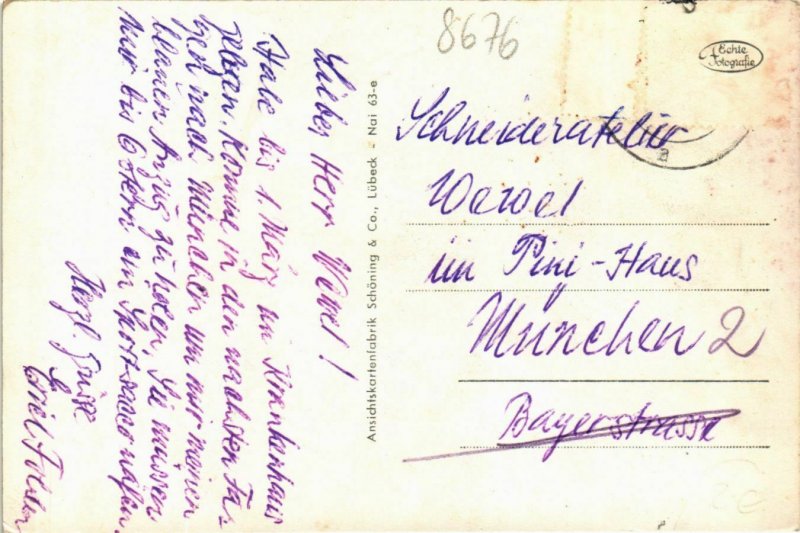 Lieber Herr Wewel!
Habe bis 1. März im Krankenhaus
gelegen. Komme in den nächsten Ta-
gen nach München um mir meinen
blauen Anzug zu holen. Sie müssen
mir bis Ostern ein Sportsacco nähen.
Herzl. Grüße
Ansichtskartenfabrik Schöning & Co., Lübeck - Nai 63-e
8676
Echte
Fotografie
Schneideratelier
Wewel
im Pini-Haus
München 2
Bayerstrasse